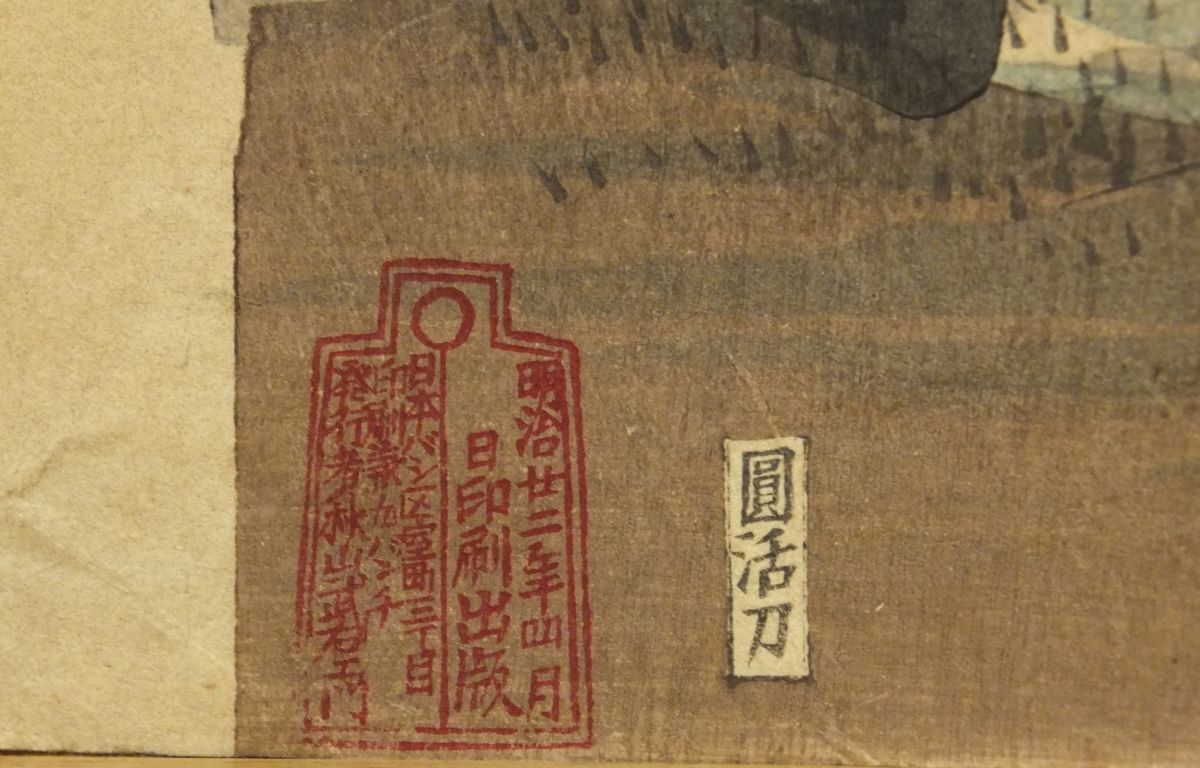 明治廿二年四月
日印刷出版
日本バシ区室町三丁目
印刷兼ム八ンチ
発行者秋山武右エ門
圓活刀